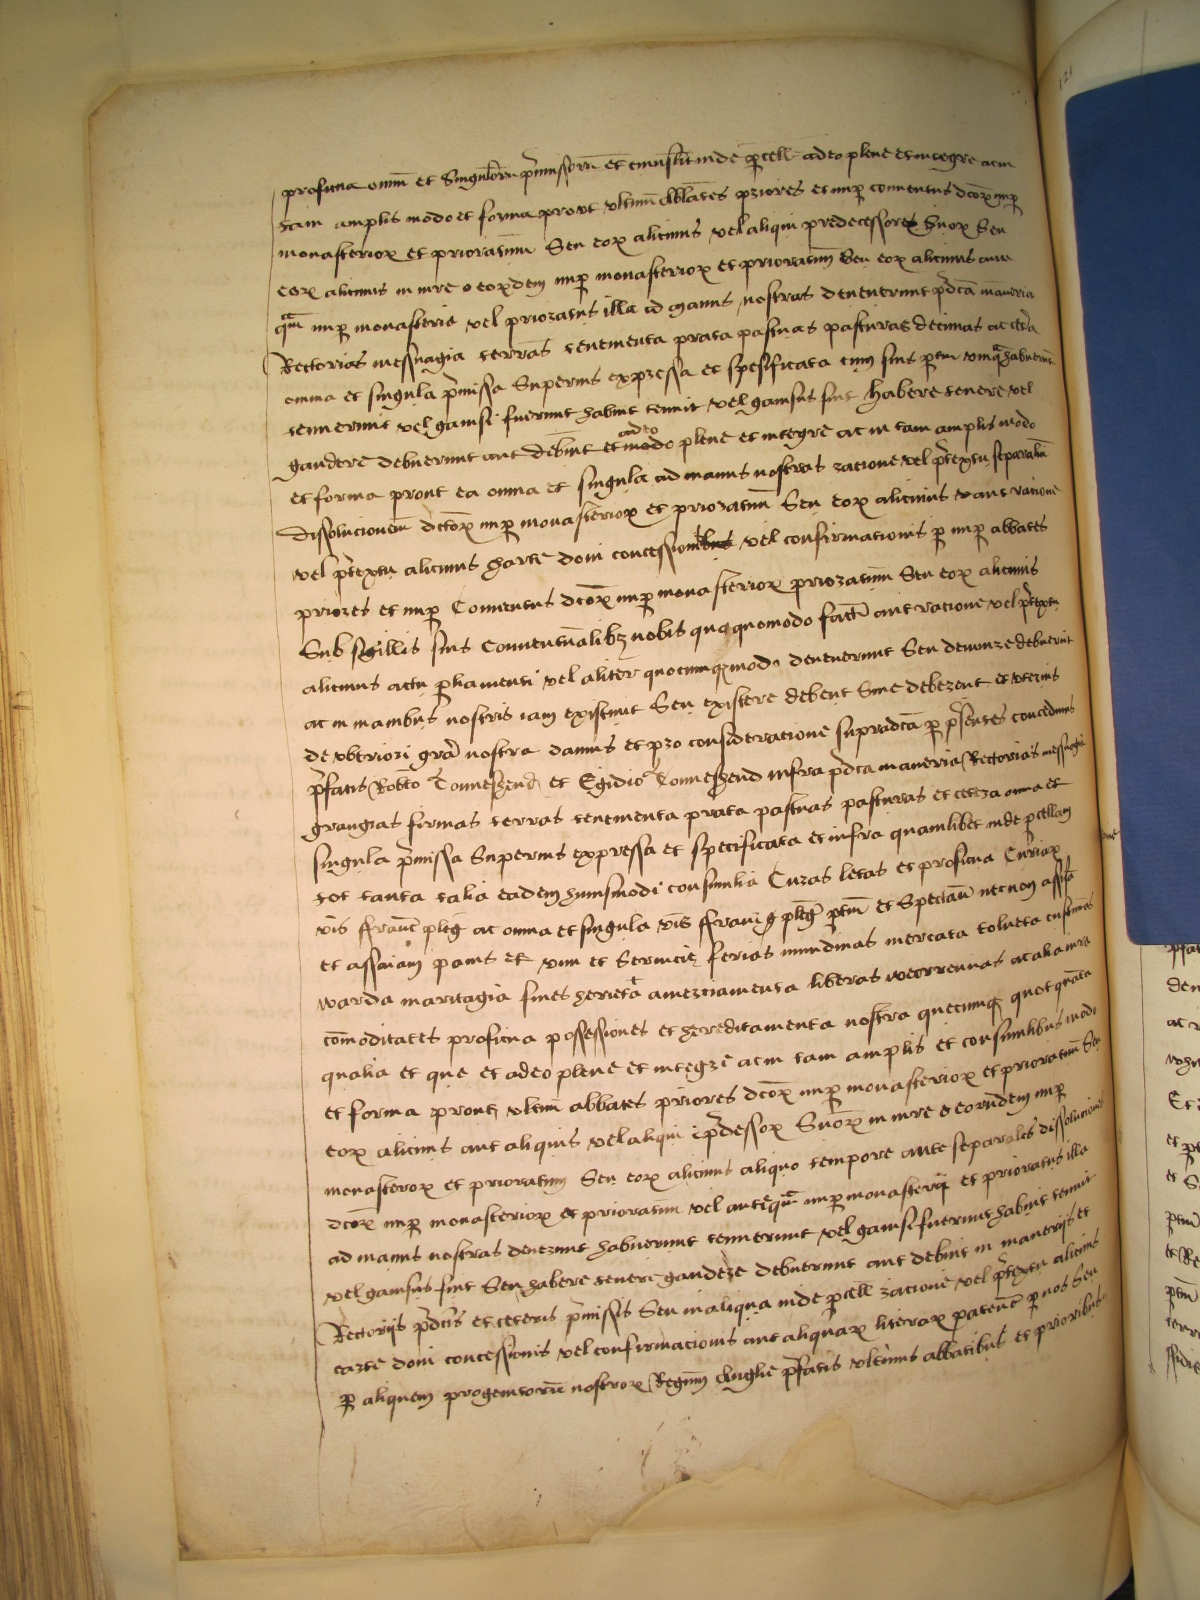 proficua omniū et Singulorū p̄missorū et cuiuslibt inde p̱cell adeo plene et integre ac in
tam amplis modo et forma prout vltimi Abbates priores et nup̱ conuentus dcoꝝ nup̱
monasterioꝝ et prioratuum Seu eoꝝ alicuius vel aliqui predecessores Suoꝝ Seu
eoꝝ alicuius in iure eoꝝdem nup̱ monasterioꝝ et prioratuum Seu eoꝝ alicuius ante
qᵃm nup̱ monasteria vel prioratus illa ad manus nostras deuenerunt p̄dcā maneria
Rectorias messuagia terras tenementa prata pascuas pasturas decimas ac cetera
omnia et singula p̄missa Superius expressa et spesificata cum suis ptin vnqᵃ habuerunt
tenuerunt vel gauisi fuerunt habuit tenuit vel gauisus fuit habere tenere vel
gaudere debuerunt aut debuit et adeo modo plene et integre ac in tam amplis modo
et forma prout ea omnia et singula ad manus nostras racione vel p̄textu separaliū
dissolucionem dctoꝝ nup̱ monasterioꝝ et prioratuum Seu eoꝝ alicuius vant racione
vel p̄textu alicuius charte doni concession vel confirmationis p̱ nup̱ abbates
priores et nup̱ Conuentus dcoꝝ nup̱ monasterioꝝ prioratuum Seu eoꝝ alicuius
Sub sigillis suis Conuentualibꝫ nobis quoquomodo fact aut racione vel p̄textu
alicuius actu p̱liamenti vel aliter quocumqꝫ modo deuenerunt Seu deuenire debuerunt
ac in manibus nostris iam existunt Seu existere debent Siue deberent et vterius
de vberiori grā nostra damus et pro consideracione supradcā p̱ p̄sentes concedimus
p̄fatis Robto Towneshend et Egidio Towneshend infra p̄dca maneria Rectorias messuagia
grangias firmas terras tenementa prata pascuas pasturas et cetera omnia et
singula p̄missa Superius expressa et specificata et infra quamlibet inde p̱cellam
tot tanta talia eadem huiusmodi consimilia Curas letas et proficua Curiaꝝ
vis ffranc pleg ac omnia et singula vis ffranc pleg ptin et Spectan necnon assisā
et assaiam panis et vini et Seruicie ferias nundinas mercata tolneta custumas
warda maritagia fines herieta amerciamenta liberas warennas ac alia iura
cōmoditates proficua possessiones et hereditamenta nostra quecumqꝫ quot quanta
qualia et que et adeo plene et integre ac in tam amplis et consimilibus modo
et forma prout vltimi abbates priores dcoꝝ nup̱ monasterioꝝ et prioratuum Seu
eoꝝ alicuius aut aliquis vel aliqui p̄dessoꝝ Suoꝝ in iure eorundem nup̱
monasterioꝝ et prioratuum Seu eoꝝ alicuius aliquo tempore ante separales dissoluciones
dcoꝝ nup̱ monasterioꝝ et prioratuum vel anteqᵃ nup̱ monasteria et prioratus illa
ad manus nostras deuenerunt habuerunt tenuerunt vel gauisi fuerunt habuit tenuit
vel gauisus fuit Seu habere tenere gaudere debuerunt aut debuit in manerijs et
Rectorijs p̄dcis et ceteris p̄missis Seu in aliqua inde p̱cell racione vel p̄textu alicuius
carte doni concessionis vel confirmacionis aut aliquaꝝ literaꝝ patenc p̱ nos Seu
p̱ aliquem progenitorū nostroꝝ Regum Anglie p̄fatis vltimis abbatibus et prioribus